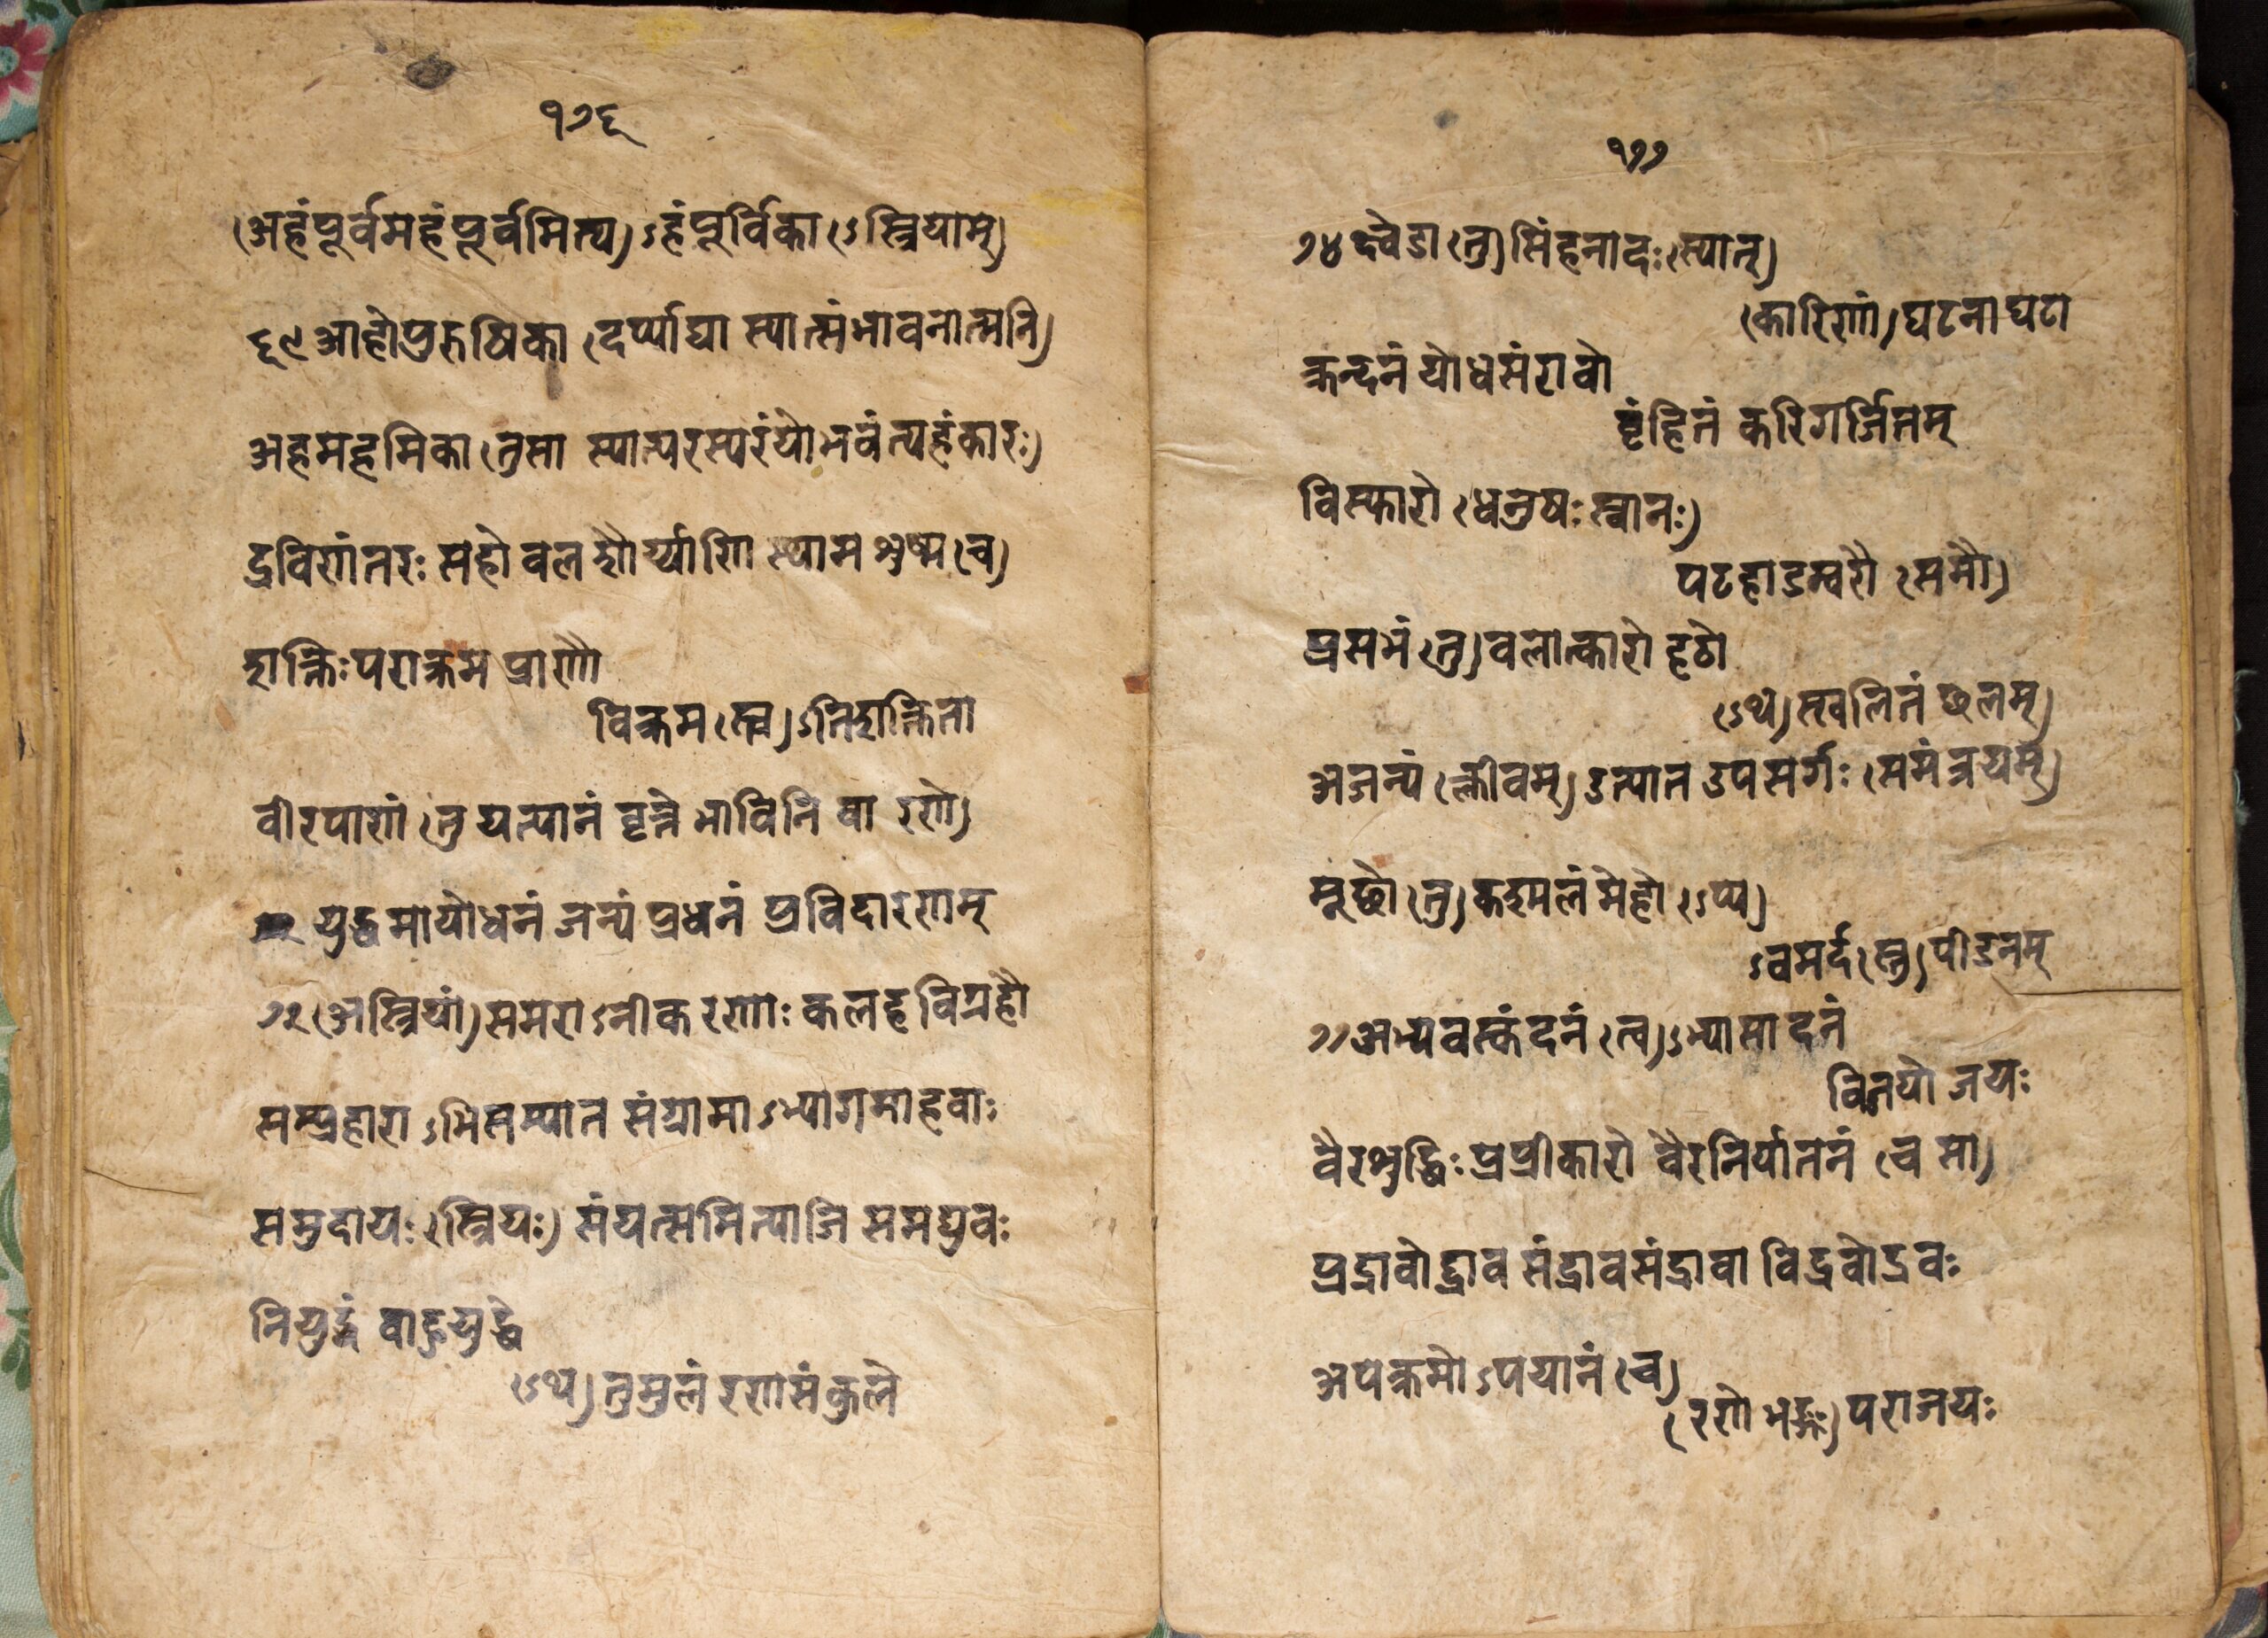 १७६
(अहंपूर्वमहंपूर्वमित्य)ऽहंपूर्विका(ऽस्त्रियाम्)
६९ आहोपुरुषिका (दर्प्पाद्या स्यात्संभावनात्मनि)
अहमहमिका (तुसा स्यात्परस्परंयोभवंत्यहंकारः)
द्रविणंतरः सहो वल शौर्य्याणि स्थाम शुष्म (च)
शक्तिःपराक्रम प्राणौ
विक्रम (स्त्व)ऽतिशक्तिता
वीरपाणं (तु यत्पानं वृत्ते भाविनि वा रणे)
युद्धमायोधनं जन्यं प्रधनं प्रविदारणम्
७२ (अस्त्रियां) समराऽनीक रणाः कलह विग्रहौ
सम्प्रहाराऽभिसम्पात संग्रामाऽभ्यागमाहवाः
समुदायः (स्त्रियः) संयत्समित्याजि समद्युवः
नियुद्धं वाहुयुद्धे
(ऽथ) तुमुलं रणसंकुले
१७७
७४ क्ष्वेडा (तु) सिंहनादः (स्यात्)
(कारिणां) घटनाघटा
क्रन्दनं योधसंरावो
वृंहितं करिगर्जितम्
विस्फारो (धनुषः स्वानः)
पटहाडम्वरौ (समौ)
प्रसभं (तु) वलात्कारो हठो
(ऽथ) स्खलितं छलम्
अजन्यं (क्लीवम्) उत्पात उपसर्गः (समं त्रयम्)
मूर्छा (तु) कश्मलं मेहो (ऽप्य)
ऽवमर्द (स्तु) पीडनम्
७७ अभ्यवस्कंदनं (त्व)ऽभ्यासादनं
विजयो जयः
वैरशुद्धिः प्रप्रीकारो वैरनिर्यातनं (च सा)
प्रद्रावोद्द्राव संद्रावसंद्रावा विद्रवोद्रवः
अपक्रमोऽपयानं (च)
(रणे भङ्गः) पराजयः